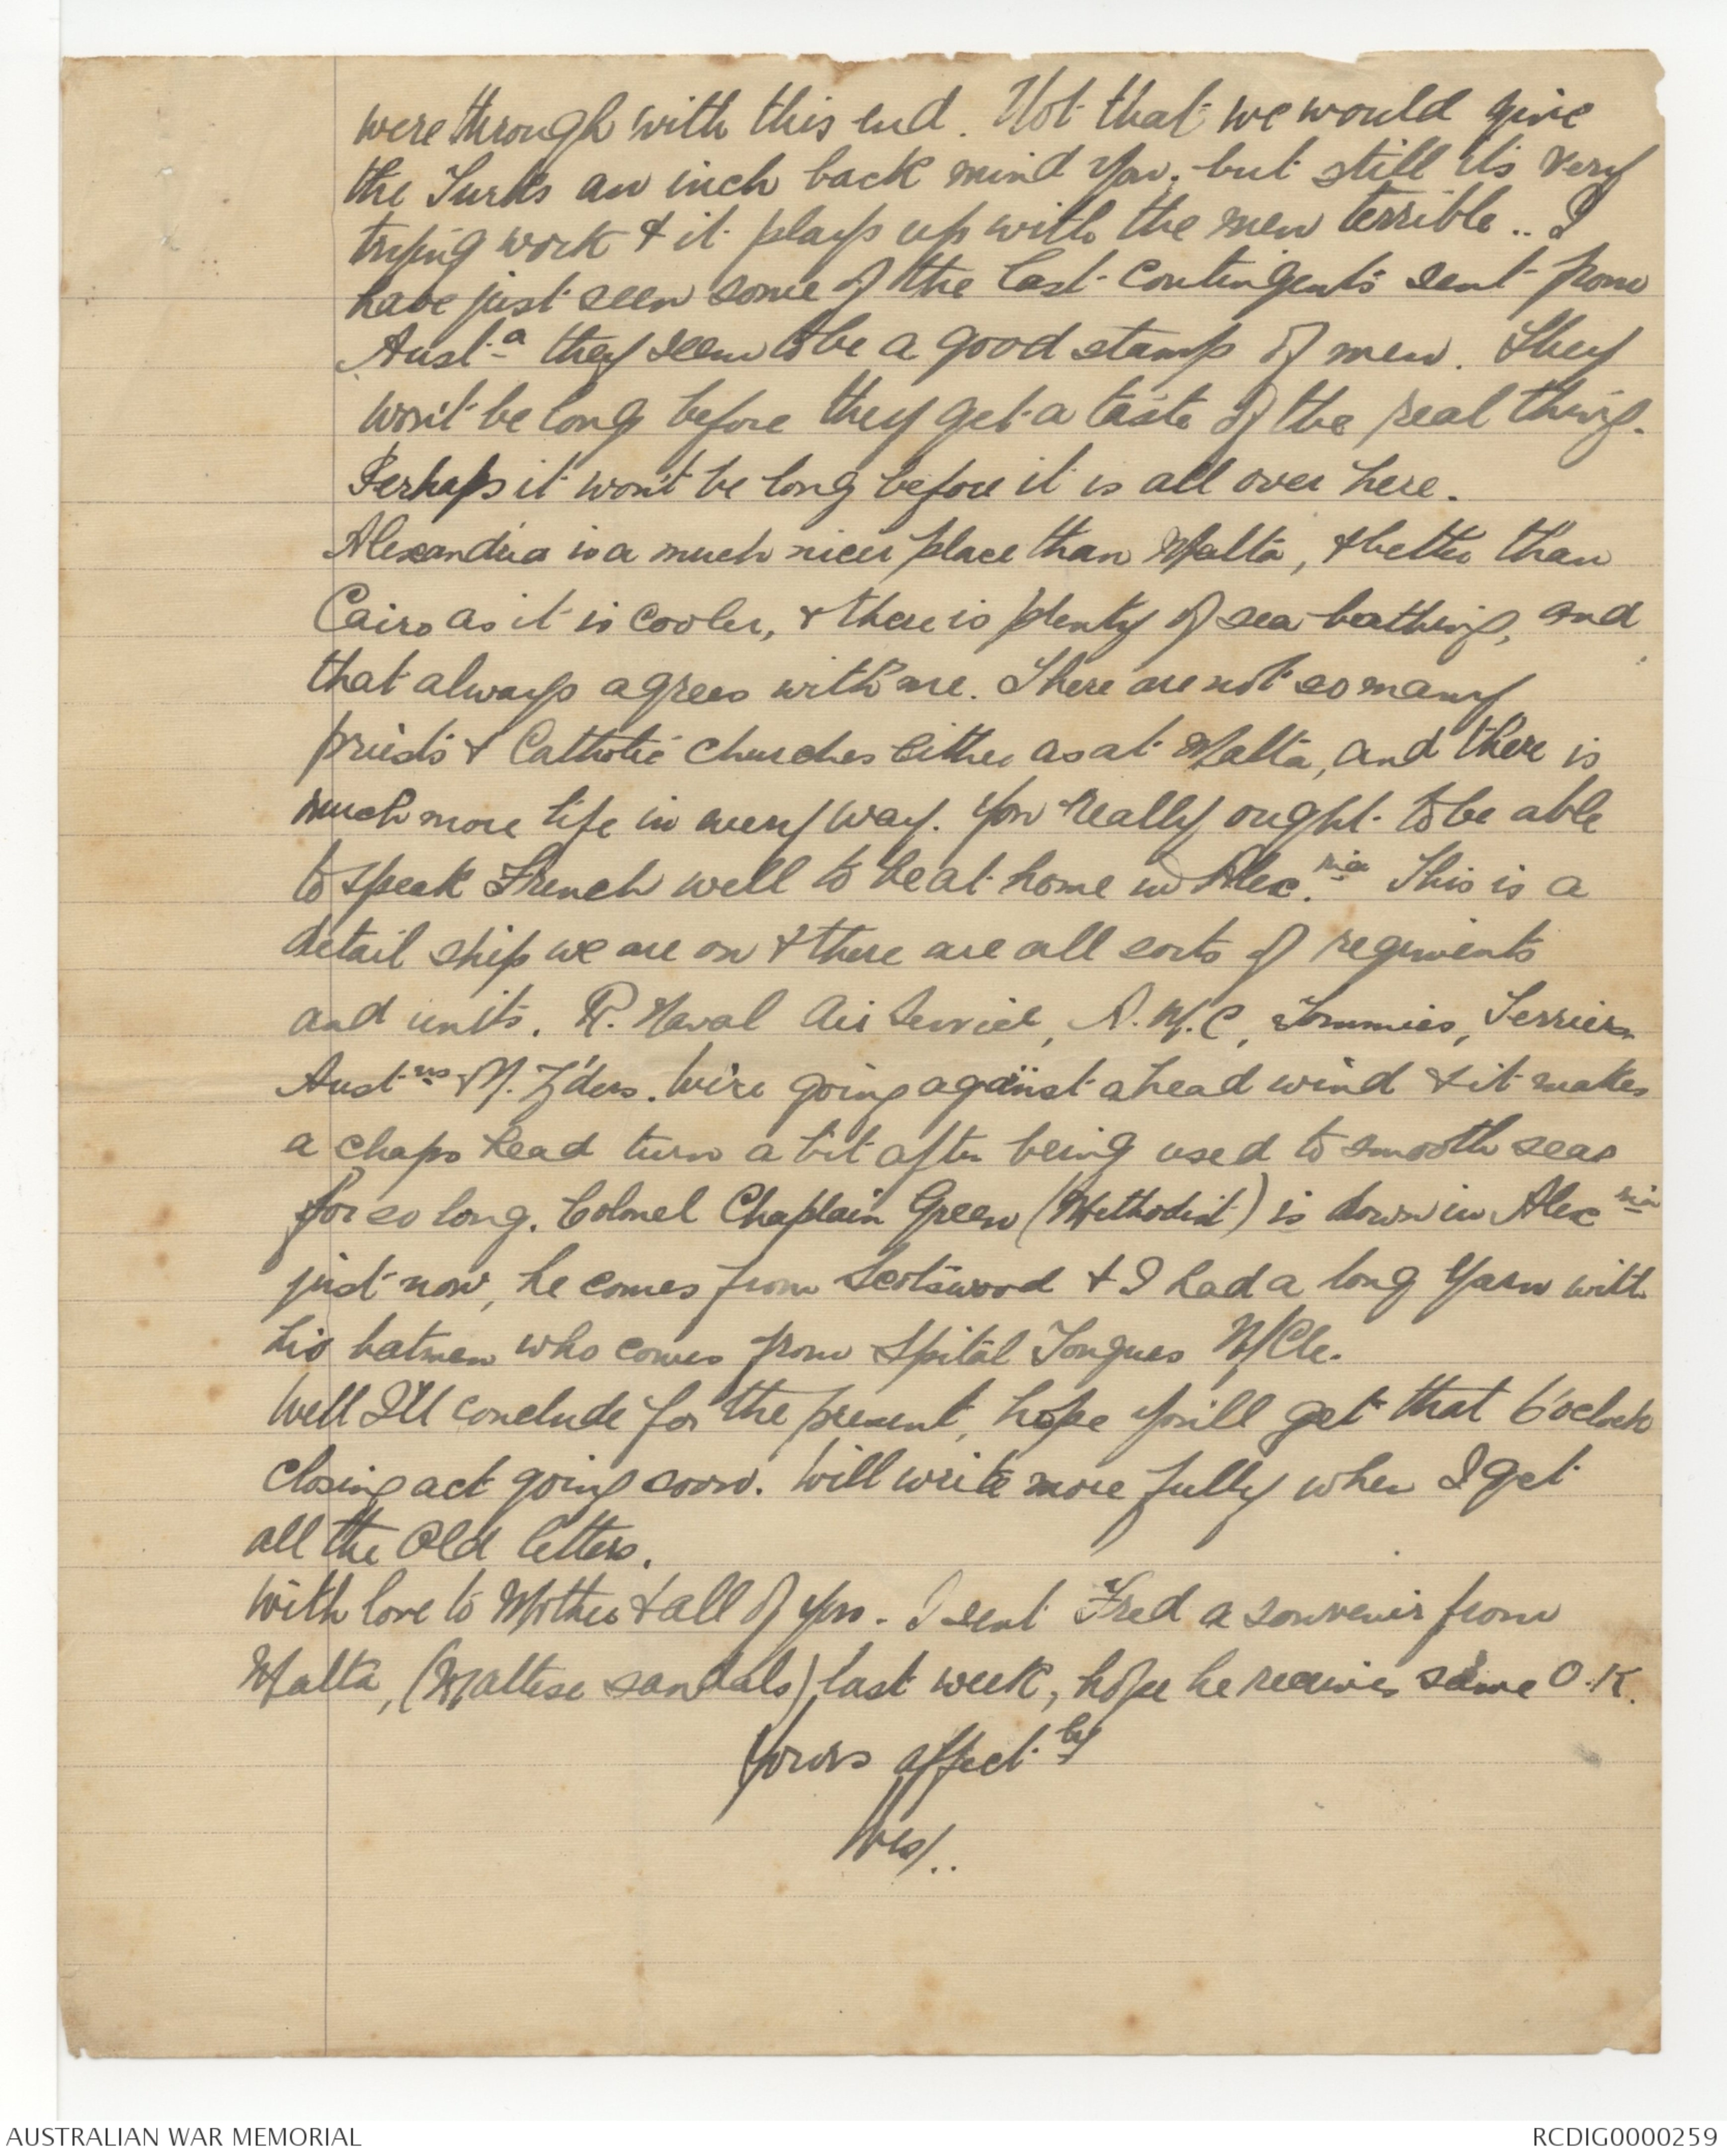 were through with this end. Not that we would give
the Turks an inch back mind you, but still its very
trying work & it plays up with the men terrible.. I
have just seen some of the last contingents sent from
Aust.a they seem to be a good stamp of men. They
won't be long before they get a taste of the real thing.
Perhaps it won't be long before it is all over here.
Alexandria is a much nicer place than Malta, & better than
Cairo as it is cooler, & there is plenty of sea bathing, and
that always agrees with me. There are not so many
priests & Catholic churches either as at Malta, and there is
much more life in every way. You really ought to be able
to speak French well to be at home in Alex.ria This is a
detail ship we are on & there are all sorts of regiments
and units. R. Naval Air Service, A.M.C, Tommies, Terriers
Aust.ns & N. Z'ders. We're going against a head wind & it makes
a chaps head turn a bit after being used to smooth seas
for so long. Colonel Chaplain Green (Methodist) is down in Alex ria
just now, he comes from Scotswood & I had a long yarn with
his batman who comes from Spital Tongues N/Cle.
Well I'll conclude for the present, hope you'll get that 6 o'clock
closing act going soon. Will write more fully when I get
all the old letters.
With love to Mother & all of you. I sent Fred a souvenir from
Malta, (Maltese sandals) last week, hope he receives same O.K.
Yours affect.ly
Wes/..
AUSTRALIAN WAR MEMORIAL
RCDIG0000259